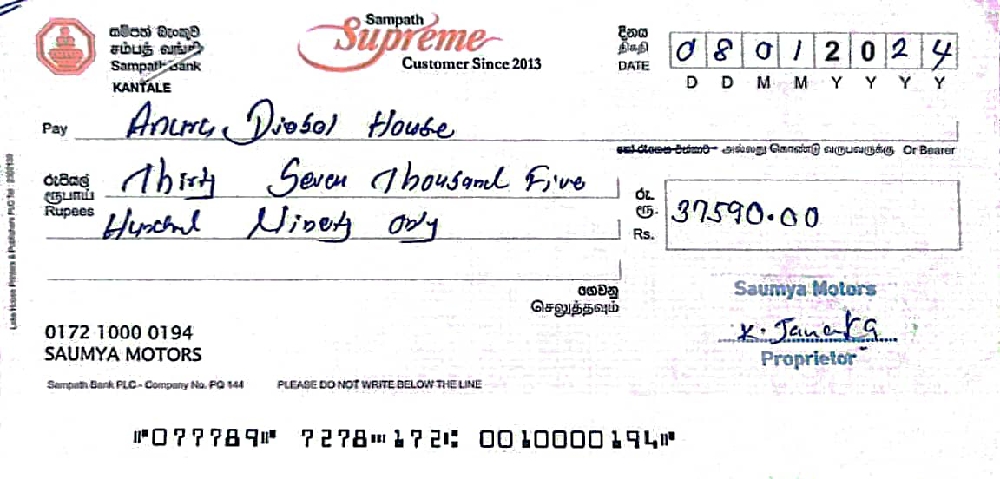 සම්පත් බැංකුව
சம்பத் வங்கி
Sampath Bank
KANTALE
Sampath
Supreme
Customer Since 2013
දිනය
திகதி
DATE
0 8 0 1 2 0 2 4
D D M M Y Y Y Y
Pay Diesel House
அல்லது கொண்டு வருபவருக்கு Or Bearer
රුපියල්
ரூபாய்
Rupees
Thirty Seven Thousand Five
Hundred Ninety Only
රු.
ரூ.
Rs.
37590.00
ගෙවනු
செலுத்தவும்
Saumya Motors
K. Janaka
Proprietor
0172 1000 0194
SAUMYA MOTORS
Sampath Bank PLC - Company No. PQ 144 PLEASE DO NOT WRITE BELOW THE LINE
⑈077789⑈ 7278⑉172⑆ 0010000194⑈